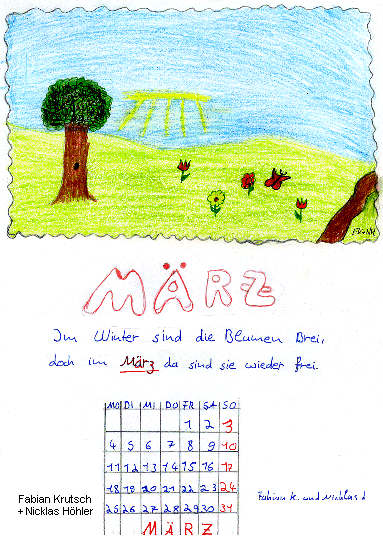 MÄRZ
Im Winter sind die Blumen Brei,
doch im März da sind sie wieder frei.
MO DI MI DO FR SA SO
1 2 3
4 5 6 7 8 9 10
11 12 13 14 15 16 17
18 19 20 21 22 23 24
25 26 27 28 29 30 31
MÄRZ
Fabian Krutsch
+ Nicklas Höhler
Fabian K. und Nicklas